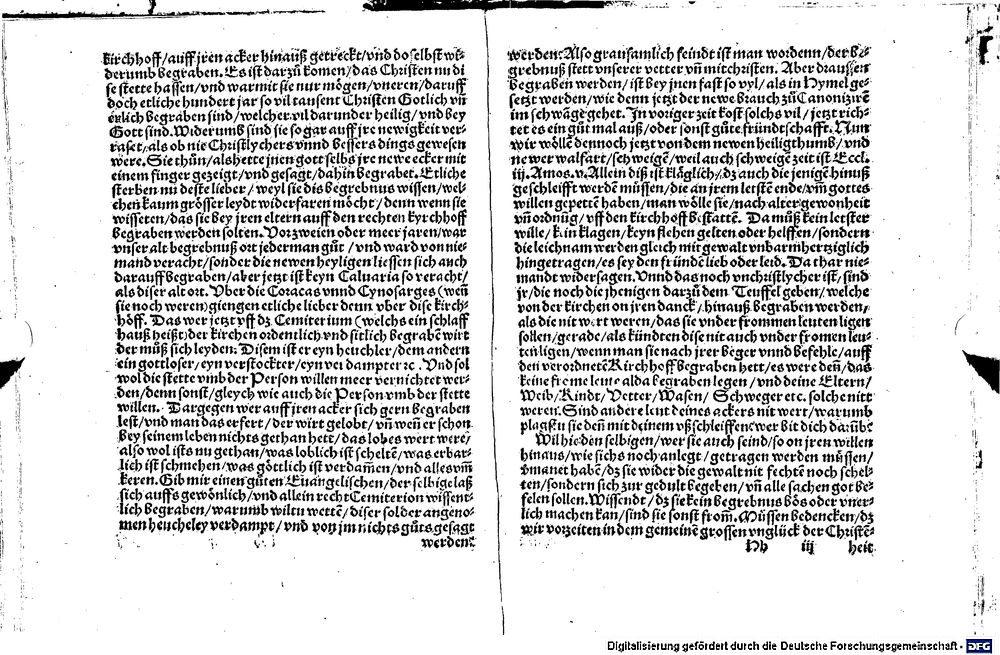 kirchhoff/auff jren acker hinauß getreckt/vnd doselbst wi-
derumb begraben. Es ist darzů komen/das Christen nu di
se stette hassen/vnd war mit sie nur mögen/vneren/darauff
doch etliche hundert jar so vil tausent Christen Gotlich vñ
erlich begraben sind/welcher vil darunder heilig/vnd bey
Gott sind. Widerumb sind sie so gar auff jre newigkeit ver-
raset/als ob nie Christlychers vnnd bessers dings gewesen
were. Sie thůn/als hette jnen gott selbs jre newe ecker mit
einem finger gezeigt/vnd gesagt/dahin begrabet. Etliche
sterben nu deste lieber/weyl sie dis begrebnus wissen/wel-
chen kaum grösser leydt widerfaren möcht/denn wenn sie
wisseten/das sie bey jren eltern auff den rechten kyrchhoff
begraben werden solten. Vor zweien oder meer jaren/war
vnser alt begrebnuß ort jederman gůt/vnd ward von nie-
mand veracht/sonder die newen heyligen liessen sich auch
darauff begraben/aber jetzt ist keyn Caluaria so veracht/
als diser alt ort. Vber die Coracas vnnd Cynosarges (weñ
sie noch weren) giengen etliche lieber denn vber dise kirch-
höff. Das wer jetzt vff dz Cemiterium (welchs ein schlaff
hauß heißt) der kirchen ordentlich vnd sitlich begrabẽ wirt
der můß sich leyden: Disem ist er eyn heuchler/dem andern
ein gottloser/eyn verstockter/eyn verdampter ꝛc. Vnd sol
wol die stette vmb der Person willen meer vernichtet wer-
den/denn sonst/gleych wie auch die Person vmb der stette
willen. Dargegen wer auff jren acker sich gern begraben
lest/vnd man das erfert/der wirt gelobt/vñ weñ er schon
bey seinem leben nichts gethan hett/das lobes wert were/
also wol ists nu gethan/was loblich ist scheltẽ/was erbar-
lich ist schmehen/was göttlich ist verdam̃en/vnd alles vm̃
keren. Gib mir einen gůten Euangelischen/der selbige laß
sich auffs gewönlich/vnd allein recht Cemiterion wissent-
lich begraben/warumb wiltu wettẽ/diser sol der angeno-
men heucheley verdampt/vnd von jm nichts gůts gesagt
werden.
werden: Also grausamlich feindt ist man wordenn/der be-
grebnuß stett vnserer vetter vñ mitchristen. Aber draussen
begraben werden/ist bey jnen fast so vyl/als in Hymel ge-
setzt werden/wie denn jetzt der newe brauch zů Canonizirẽ
im schwãge gehet. In voriger zeit kost solchs vil/jetzt rich-
tet es ein gůt mal auß/oder sonst gůte fründtschafft. Nun
wir wöllẽ dennoch jetzt von dem newen heiligthumb/vnd
newer walfart/schweigẽ/weil auch schweigẽ zeit ist Eccl.
iij. Amos. v. Allein diß ist kläglich/dz auch die jenigẽ hinuß
geschleifft werdẽ müssen/die an jrem letstẽ ende/vm̃ gottes
willen gepettẽ haben/man wölle sie/nach alter gewonheit
vñ ordnũg/vff den kirchhoff bestattẽ. Da můß kein letster
wille/kein klagen/keyn flehen gelten oder helffen/sondern
die leichnam werden gleich mit gewalt vnbarmhertziglich
hingetragen/es sey den fründẽ lieb oder leid. Da thar nie-
mandt widersagen. Vnnd das noch vnchristlycher ist/sind
jr/die noch die jhenigen darzů dem Teuffel geben/welche
von der kirchen on jren danck/hinauß begraben werden/
als die nit wert weren/das sie vnder frommen leuten ligen
sollen/gerade/als kündten dise nit auch vnder fromen leu-
ten ligen/wenn man sie nach jrer beger vnnd befehle/auff
den verordnetẽ Kirchhoff begraben hett/es were deñ/das
keine frome leute alda begraben legen/vnd deine Eltern/
Weib/Kindt/Vetter/Wasen/Schweger etc. solche nitt
weren. Sind andere leut deines ackers nit wert/warumb
plagstu sie deñ mit deinem vßschleiffen: wer bit dich darũb?
Wil hie den selbigen/wer sie auch seind/so on jren willen
hinaus/wie sichs noch anlegt/getragen werden müssen/
vmanet habẽ/dz sie wider die gewalt nit fechtẽ noch schel-
ten/sondern sich zur gedult begeben/vñ alle sachen got be-
felen sollen. Wissendt/dz sie kein begrebnus bös oder vner-
lich machen kan/sind sie sonst from̃. Müssen bedencken/dz
wir vorzeiten in dem gemeinẽ grossen vnglück der Christẽ-
Hh iij heit
Digitalisierung gefördert durch die Deutsche Forschungsgemeinschaft - DFG